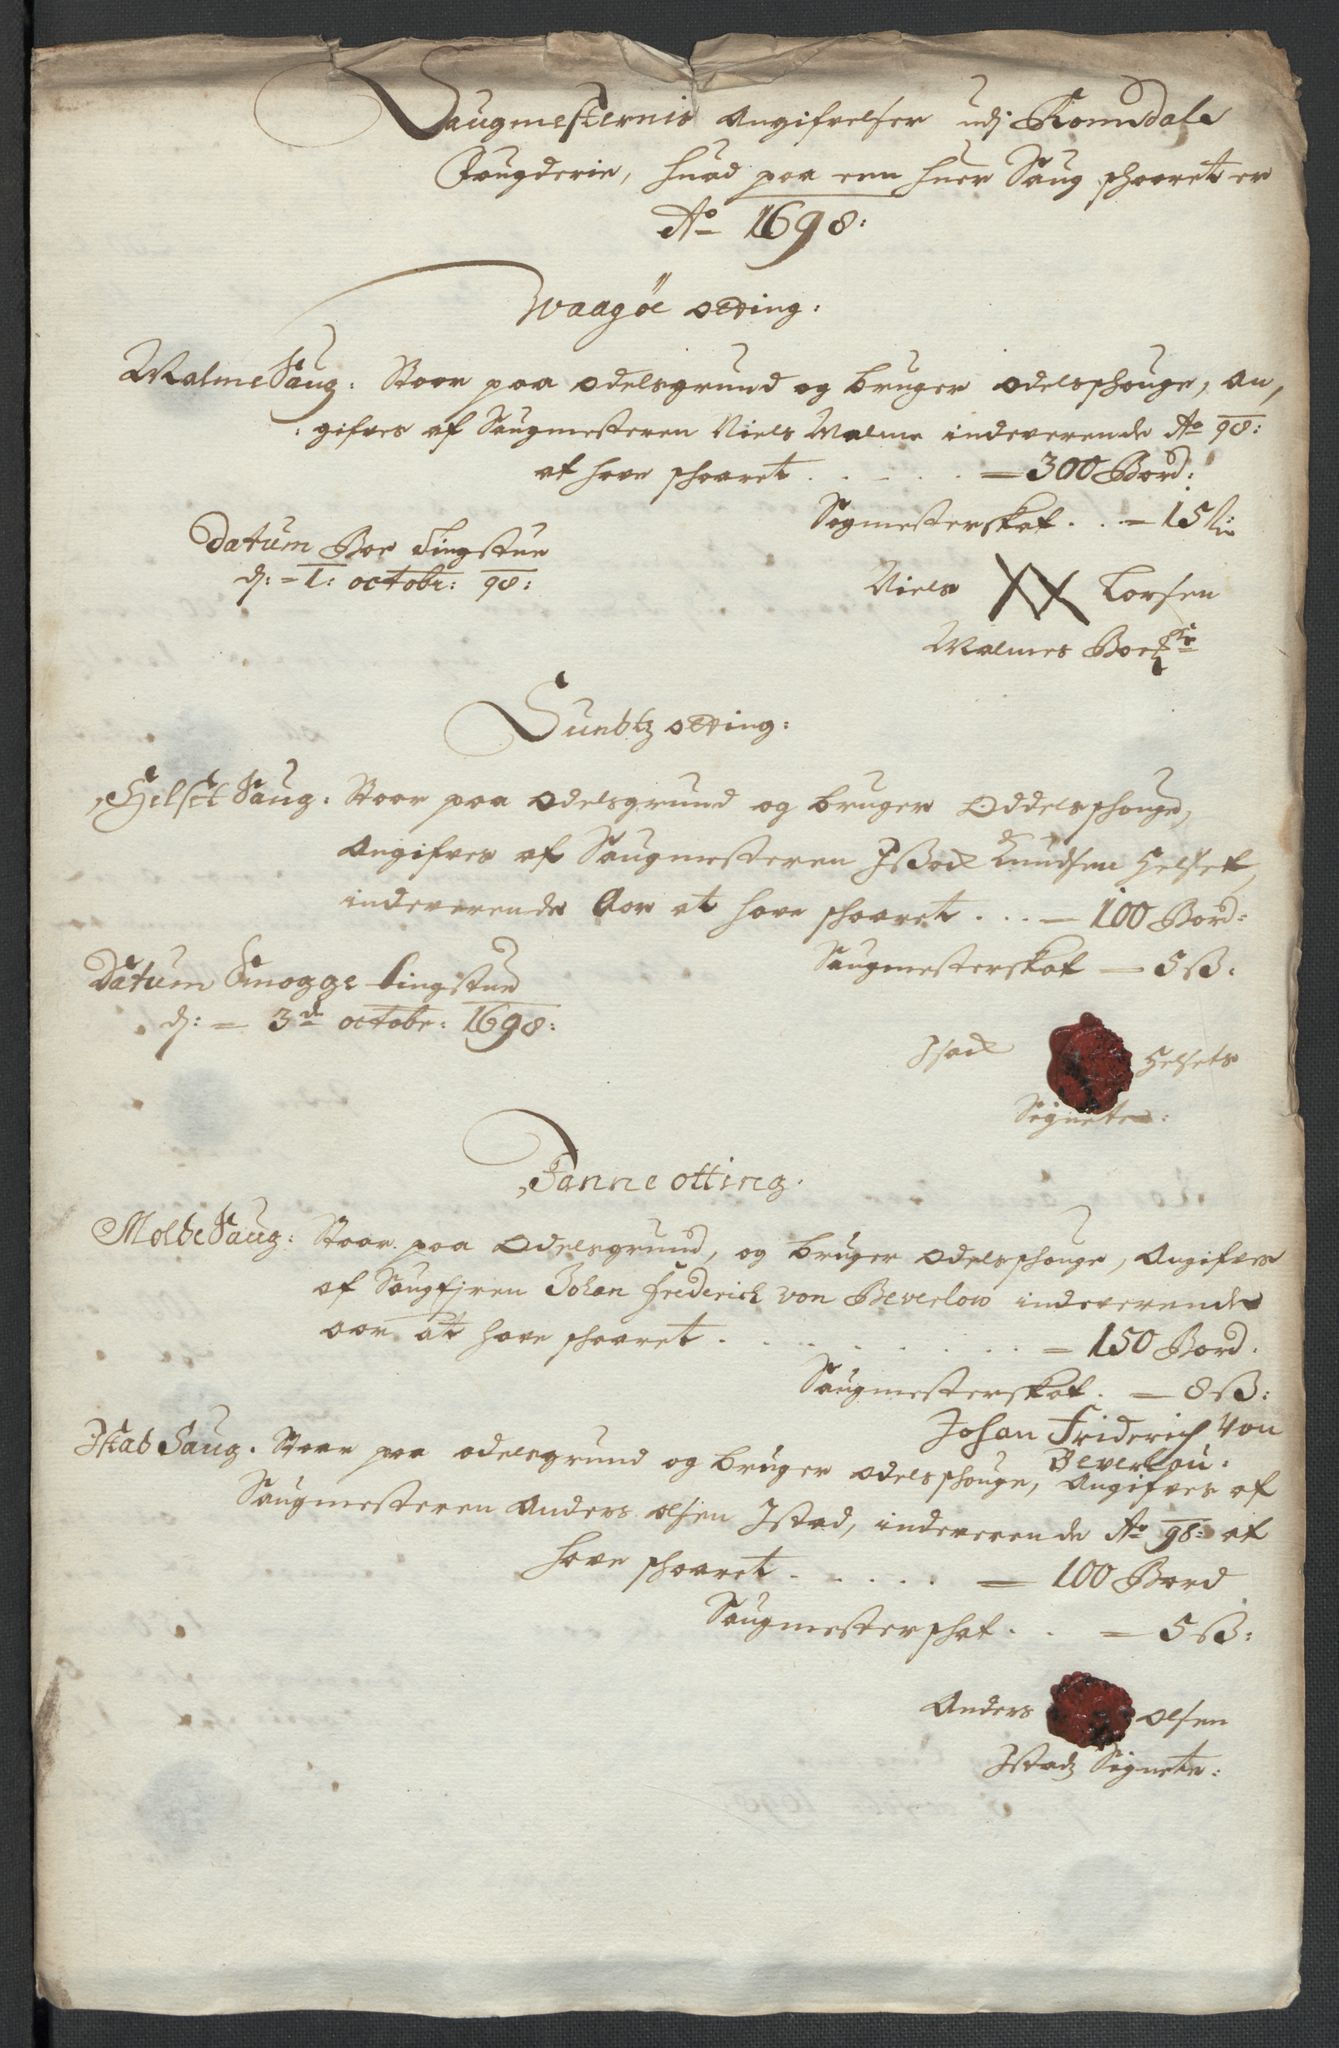 Saugmesternis Angifvelser udj Romsdals
Fougderie, huad paa enn huer Saug schaaret er
Ao 1698:
Waagöe otting:
Malme Saug: Staar paa odelsgrund og bruger odelsschouge, an,
gifves af Saugmesteren Niels Malme indeverende Ao 98:
at have schaaret . . . . = 300 Bord:
Sogmesterskat . . = 15 ß:
Datum Boe Tingstue
dj: = 1: octobr: 98:
Niels Lorsen
Malmes
Sundtz otting:
Helset Saug: Staar paa odelsgrund og bruger Oddelsschouge,
Angifves af Saugmesteren Isack Knudsen Helset,
indeverende Aar at have schaaret . . . = 100 Bord:
Saugmesterskat = 5 ß:
Datum Smogge tingstue
dj: = 3de octobr: 1698:
Isack Helsets
Signete:
Fanne otting.
Molde Saug: Staar paa Odelsgrund, og bruger odelsschouge, Angifves
af Saugfjren Johan Frederich von Beverlow indeverende
aar at have schaaret . . . . . . . = 150 Bord.
Saugmesterskat. = 8 ß:
Johan Friderich Von
Beverlau:
Istad Saug. Staar paa odelsgrund og bruger odelsschouge, Angifves af
Saugmesteren Anders olsen Istad, indeverende Ao 98: at
have schaaret . . . . . = 100 Bord
Saugmesterschat . . = 5 ß:
Anders olsen
Istadz Signete: